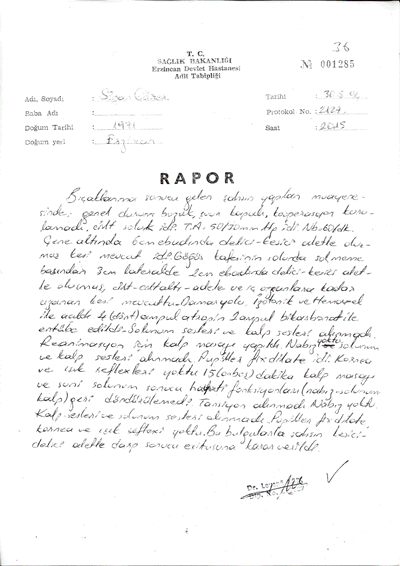 36
T. C.
SAĞLIK BAKANLIĞI
Erzincan Devlet Hastanesi
Adli Tabipliği
№ 001285
Adı, Soyadı :
Tarihi :
Baba Adı :
Protokol No. : 2127
Doğum Tarihi : 1971
Saat : 20.15
Doğum yeri : Erzincan
RAPOR
Bıçaklanma sonucu gelen şahsın yapılan muayene-
sinde; genel durum bozuk, şuur kapalı, kooperasyon kuru-
lamadı, cilt soluk idi. T.A: 50/20 mm Hg idi. Nb: 60/dk.
Çene altında 6 cm ebadında delici-kesici aletle oluş-
muş kesi mevcut idi. Göğüs kafesinin solunda sol meme
başından 3 cm lateralde 2 cm ebadında delici-kesici alet-
le oluşmuş, cilt-ciltaltı-adele ve iç organlara kadar
uzanan kesi mevcuttu. Damaryolu, İzotonik ve Hemacel
ile açıldı. 4 (dört) ampul atropin 2 ampul bikarbonat ile
entübe edildi. Solunum sesleri ve kalp sesleri alınmadı.
Reanimasyon için kalp masajı yapıldı. Nabız yoktu solunum
ve kalp sesleri alınmadı. Pupiller fix dilate idi. Kornea
ve ışık refleksleri yoktu. 15 (onbeş) dakika kalp masajı
ve suni solunum sonucu hayati fonksiyonları (nabız-solunum
kalp) geri döndürülemedi. Tansiyon alınmadı Nabız yoktu.
Kalp sesleri ve solunum sesleri alınmadı. Pupiller fix dilate,
kornea ve ışık refleksi yoktu. Bu bulgularla şahsın kesici-
delici aletle darp sonucu exitusuna karar verildi.
Dr.